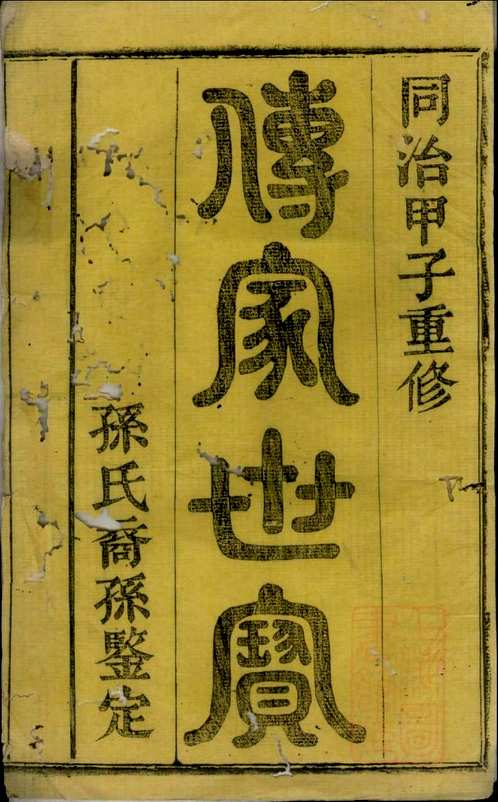 同治甲子重修
傳家世寶
孫氏裔孫鍳定